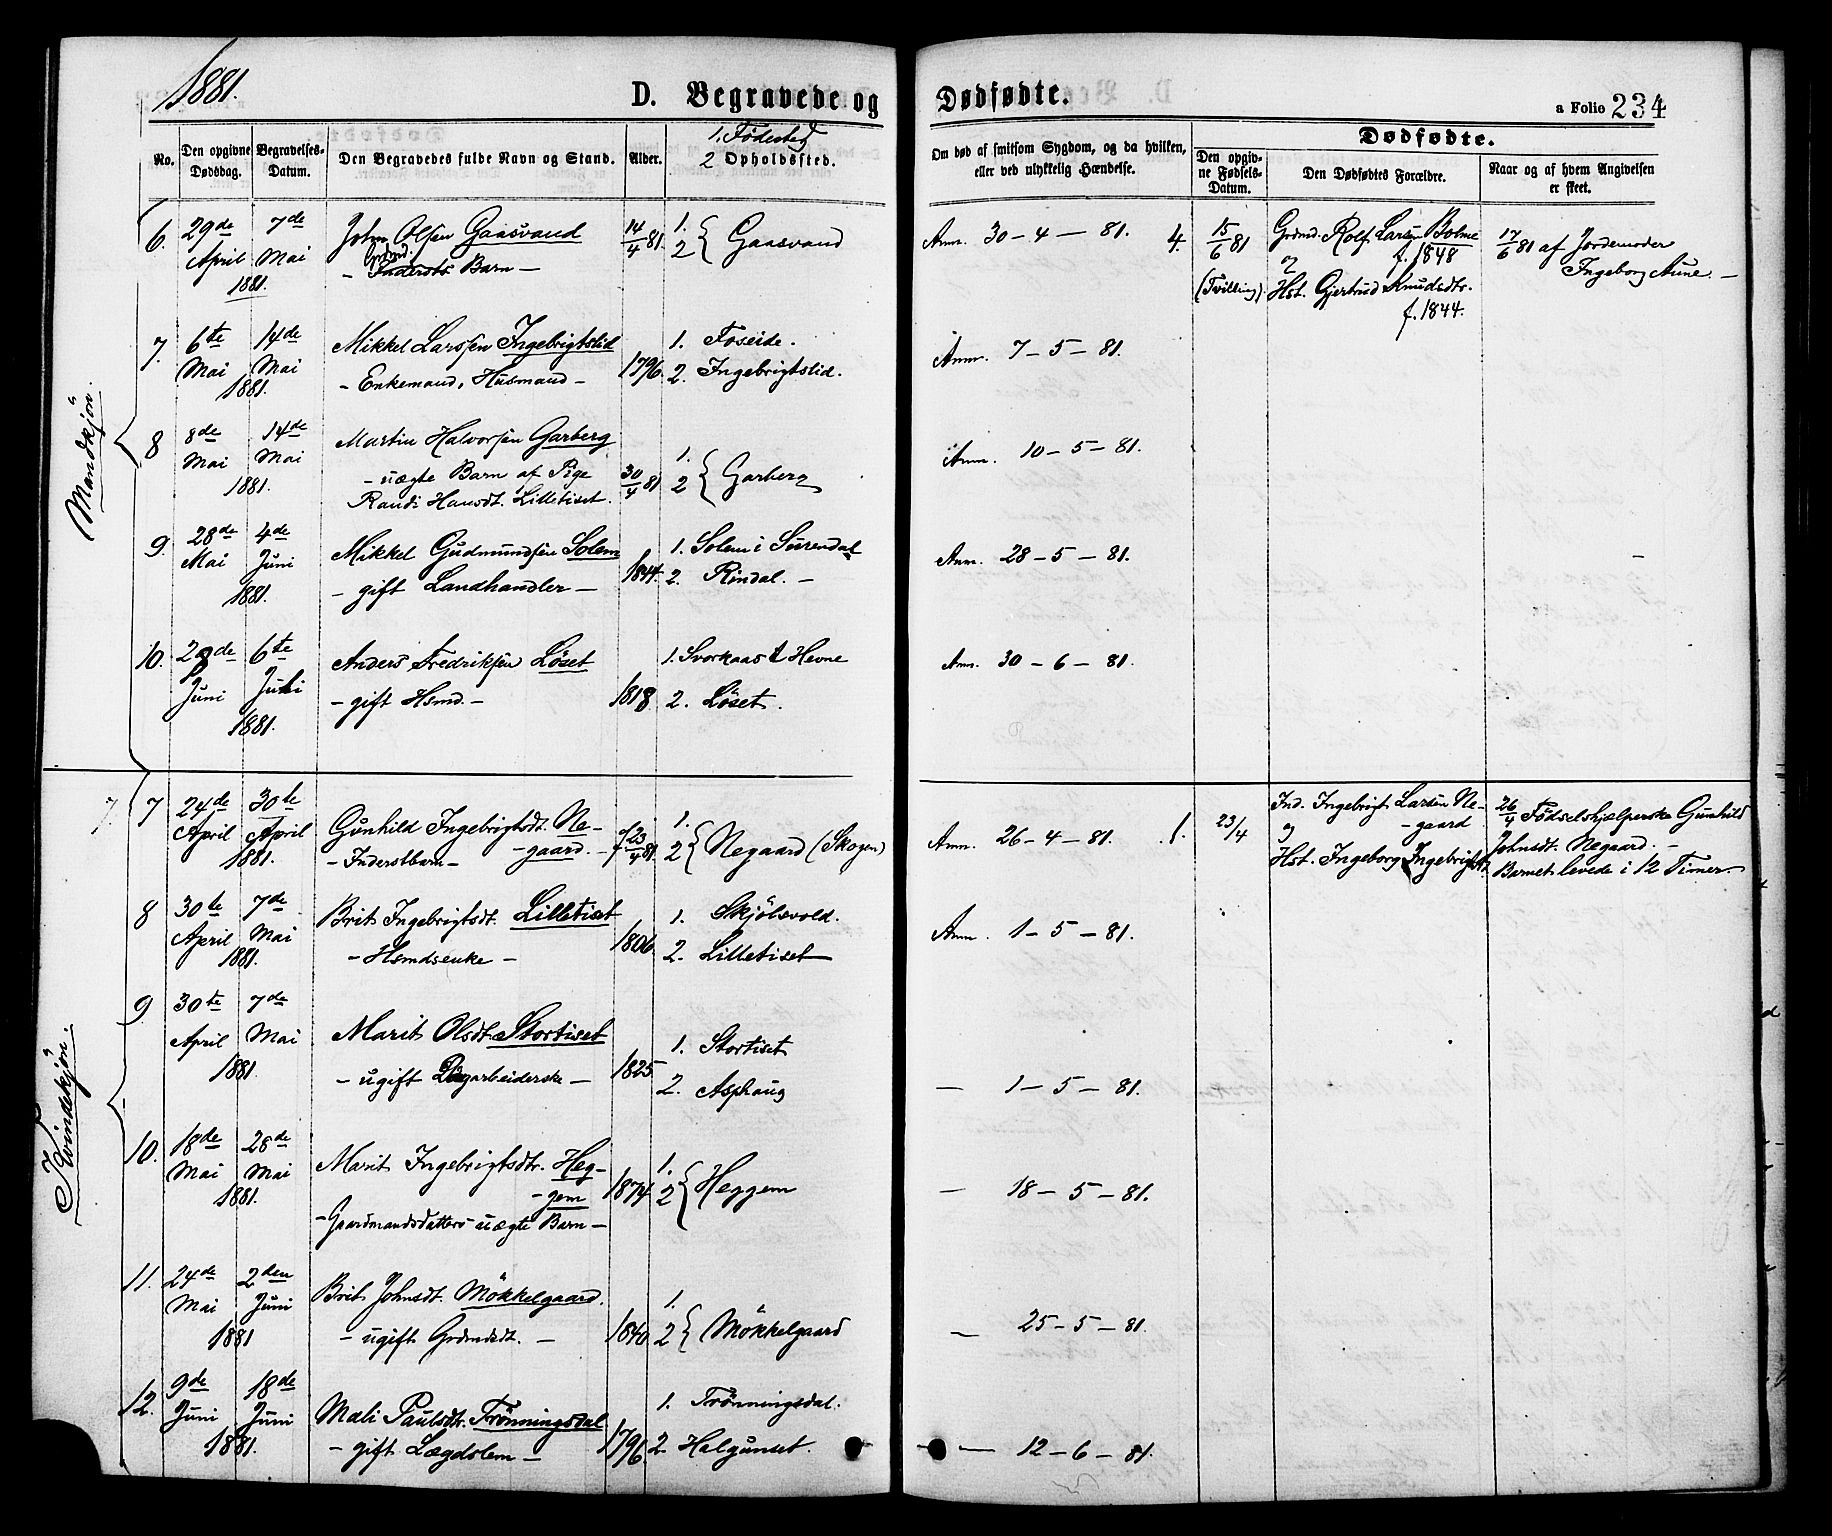 1881.
D. Begravede og Dødfødte.
a Folio 234
No.
Den opgivne Dødsdag.
Begravelses-Datum.
Den Begravedes fulde Navn og Stand.
Alder.
1. Fødested
2 Opholdssted.
Om død af smitsom Sygdom, og da hvilken,
eller ved ulykkelig Hændelse.
Dødfødte.
Den opgivne Fødsels-Datum.
Den Dødfødtes Forældre.
Naar og af hvem Angivelsen er skeet.
Mandkjön.
6. 29de April 7de Mai 1881.
John Olsen Gaasvand
Grdmd.
- Indersts Barn -
14/4 81.
1. 2 { Gaasvand
Anm. 30 - 4 - 81.
4. 15/6 81 (Tvilling).
Grdmd. Rolf Larsen Bolme
f. 1848
og
Hst. Gjertrud Knudsdtr.
f. 1844.
17/6 81 af Jordemoder
Ingeborg Aune -
7. 6te Mai 14de Mai 1881.
Mikkel Larssen Ingebrigtslid
- Enkemand, Husmand -
1796.
1. Foseide.
2. Ingebrigtslid.
Anm. 7 - 5 - 81.
8 8de Mai 14de Mai 1881.
Martin Halvorsen Garberg
- uægte Barn af Pige
Randi Hansdt. Lilletiset.
30/4 81
1. 2 { Garberg
Anm. 10 - 5 - 81.
9. 28de Mai 4de Juni 1881.
Mikkel Gudmundsen Solem
- gift Landhandler -
1844.
1. Solem i Surendal
2. Rindal. -
Anm. 28 - 5 - 81.
10. 29de Juni 6te Juli 1881.
Anders Fredriksen Löset
- gift Hsmd. -
1818.
1. Svorkaas i Hevne
2. Löset.
Anm. 30 - 6 - 81.
Kvindekjön.
7. 7 24de April 30te April 1881.
Gunhild Ingebrigtsdt. Ne-
- Inderstbarn - - gaard. -
f 23/4 81.
1. 2 { Negaard (Skogen)
Anm. 26 - 4 - 81.
1. 23/4
Ind. Ingebrigt Larsen Ne-
- gaard
og
Hst. Ingeborg Ingebrigtsdt.
26/4 Födselshjælperske Gunhild
Johnsdt. Negaard. -
Barnet levede i 12 Timer -
8 30te April 7de Mai 1881.
Brit Ingebrigtsdt. Lilletiset
- Hsmdsenke -
1806.
1. Skjölsvold.
2. Lilletiset
Anm. 1 - 5 - 81.
9 30te April 7de Mai 1881.
Marit Olsdt. Stortiset
- ugift Dagarbeiderske -
1825.
1. Stortiset
2. Asphaug
- 1 - 5 - 81.
10. 18de Mai 28de Mai 1881.
Marit Ingebrigtsdtr. Heg-
- gem
- Gaardmandsdatters uægte Barn -
1874.
1. 2 { Heggem
- 18 - 5 - 81.
11. 24de Mai 2den Juni 1881
Brit Johnsdt. Mökkelgaard.
- ugift Grdmdsdt. -
1840.
1. 2 { Mökkelgaard
- 25 - 5 - 81.
12. 9de Juni 18de Juni 1881.
Mali Paulsdtr. Trönningsdal
- gift Lægdslem -
1796.
1. Trönningsdal.
2. Halgunset.
- 12 - 6 - 81.